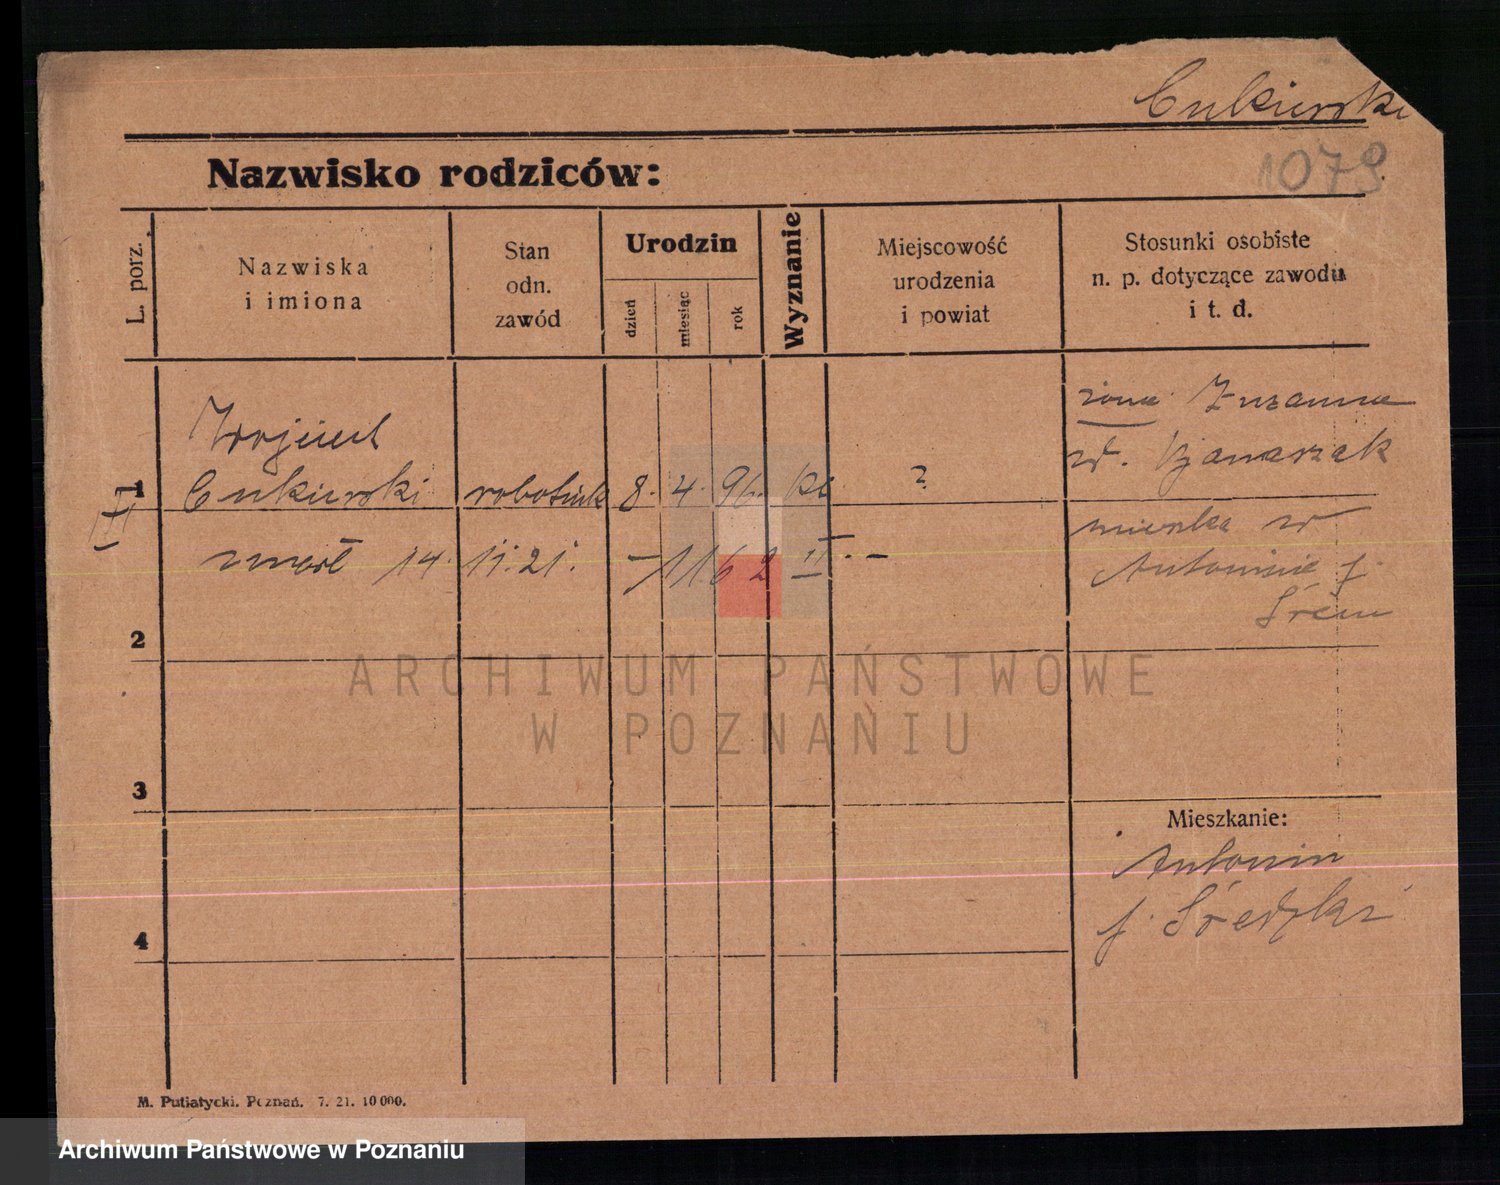 Cukierski
Nazwisko rodziców:
1079
L. porz.
Nazwiska
i imiona
Stan
odn.
zawód
Urodzin
dzień
miesiąc
rok
Wyznanie
Miejscowość
urodzenia
i powiat
Stosunki osobiste
n. p. dotyczące zawodu
i t. d.
żona Zuzanna
Wojciech
1 Cukierski robotnik 8. 4. 96. ?
mieszka w
zmarł 14. 11. 21. –/1162 II. –
Antoninie p.
Śrem
2
ARCHIWUM PAŃSTWOWE
W POZNANIU
3
Mieszkanie:
Antonin
p. Średzki
4
M. Putiatycki. Poznań. 7. 21. 10 000.
Archiwum Państwowe w Poznaniu